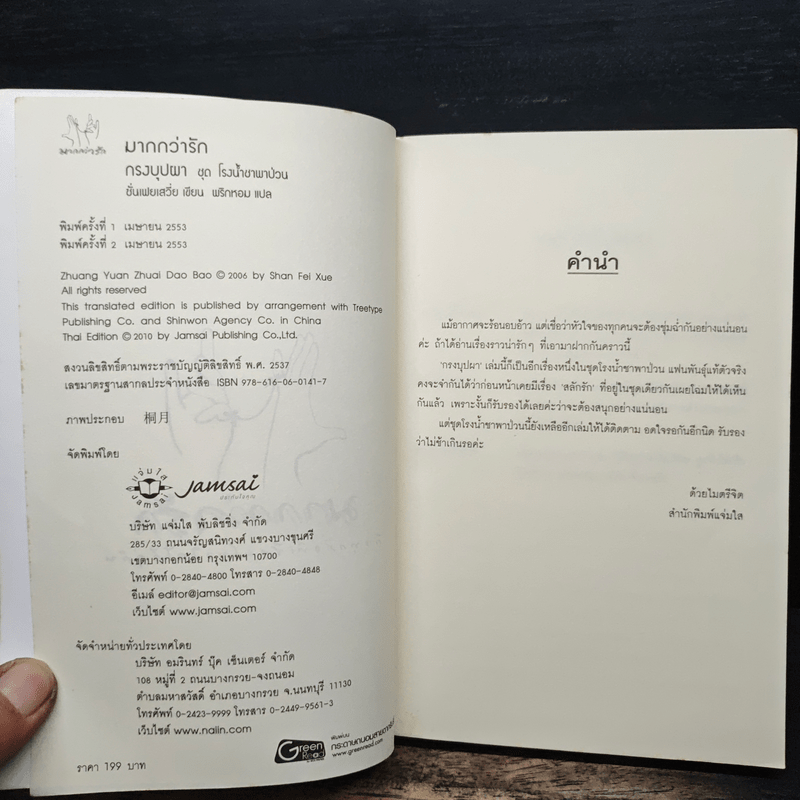 มากกว่ารัก
มากกว่ารัก
กรงบุปผา ชุด โรงน้ำชาพาป่วน
ชั่นเฟยเสวี่ย เขียน พริกหอม แปล
พิมพ์ครั้งที่ 1 เมษายน 2553
พิมพ์ครั้งที่ 2 เมษายน 2553
Zhuang Yuan Zhuai Dao Bao © 2006 by Shan Fei Xue
All rights reserved
This translated edition is published by arrangement with Treetype
Publishing Co. and Shinwon Agency Co. in China
Thai Edition © 2010 by Jamsai Publishing Co.,Ltd.
สงวนลิขสิทธิ์ตามพระราชบัญญัติลิขสิทธิ์ พ.ศ. 2537
เลขมาตรฐานสากลประจำหนังสือ ISBN 978-616-06-0141-7
ภาพประกอบ 桐月
จัดพิมพ์โดย
แจ่มใส
Jamsai
Jamsai
บริษัท แจ่มใส พับลิชชิ่ง จำกัด
285/33 ถนนจรัญสนิทวงศ์ แขวงบางขุนศรี
เขตบางกอกน้อย กรุงเทพฯ 10700
โทรศัพท์ 0-2840-4800 โทรสาร 0-2840-4848
อีเมล์ editor@jamsai.com
เว็บไซต์ www.jamsai.com
จัดจำหน่ายทั่วประเทศโดย
บริษัท อมรินทร์ บุ๊ค เซ็นเตอร์ จำกัด
108 หมู่ที่ 2 ถนนบางกรวย-จงถนอม
ตำบลมหาสวัสดิ์ อำเภอบางกรวย จ.นนทบุรี 11130
โทรศัพท์ 0-2423-9999 โทรสาร 0-2449-9561-3
เว็บไซต์ www.naiin.com
ราคา 199 บาท
Green Read
พิมพ์บน
กระดาษถนอมสายตา
www.greenread.com
คำนำ
แม้อากาศจะร้อนอบอ้าว แต่เชื่อว่าหัวใจของทุกคนจะต้องชุ่มฉ่ำกันอย่างแน่นอน
ค่ะ ถ้าได้อ่านเรื่องราวน่ารักๆ ที่เอามาฝากกันคราวนี้
'กรงบุปผา' เล่มนี้ก็เป็นอีกเรื่องหนึ่งในชุดโรงน้ำชาพาป่วน แฟนพันธุ์แท้ตัวจริง
คงจะจำกันได้ว่าก่อนหน้าเคยมีเรื่อง 'สลักรัก' ที่อยู่ในชุดเดียวกันเผยโฉมให้ได้เห็น
กันแล้ว เพราะงั้นก็รับรองได้เลยค่ะว่าจะต้องสนุกอย่างแน่นอน
แต่ชุดโรงน้ำชาพาป่วนนี้ยังเหลืออีกเล่มให้ได้ติดตาม อดใจรอกันอีกนิด รับรอง
ว่าไม่ช้าเกินรอค่ะ
ด้วยไมตรีจิต
สำนักพิมพ์แจ่มใส